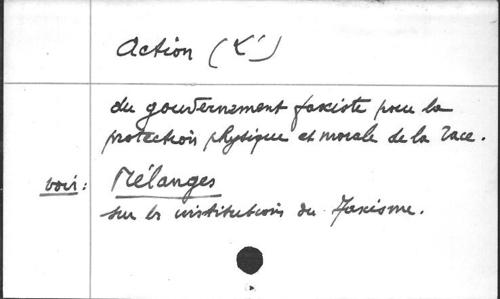 Action (L')
du gouvernement fasciste pour la
protection physique et morale de la race.
voir: Mélanges
sur les institutions du Fascisme.